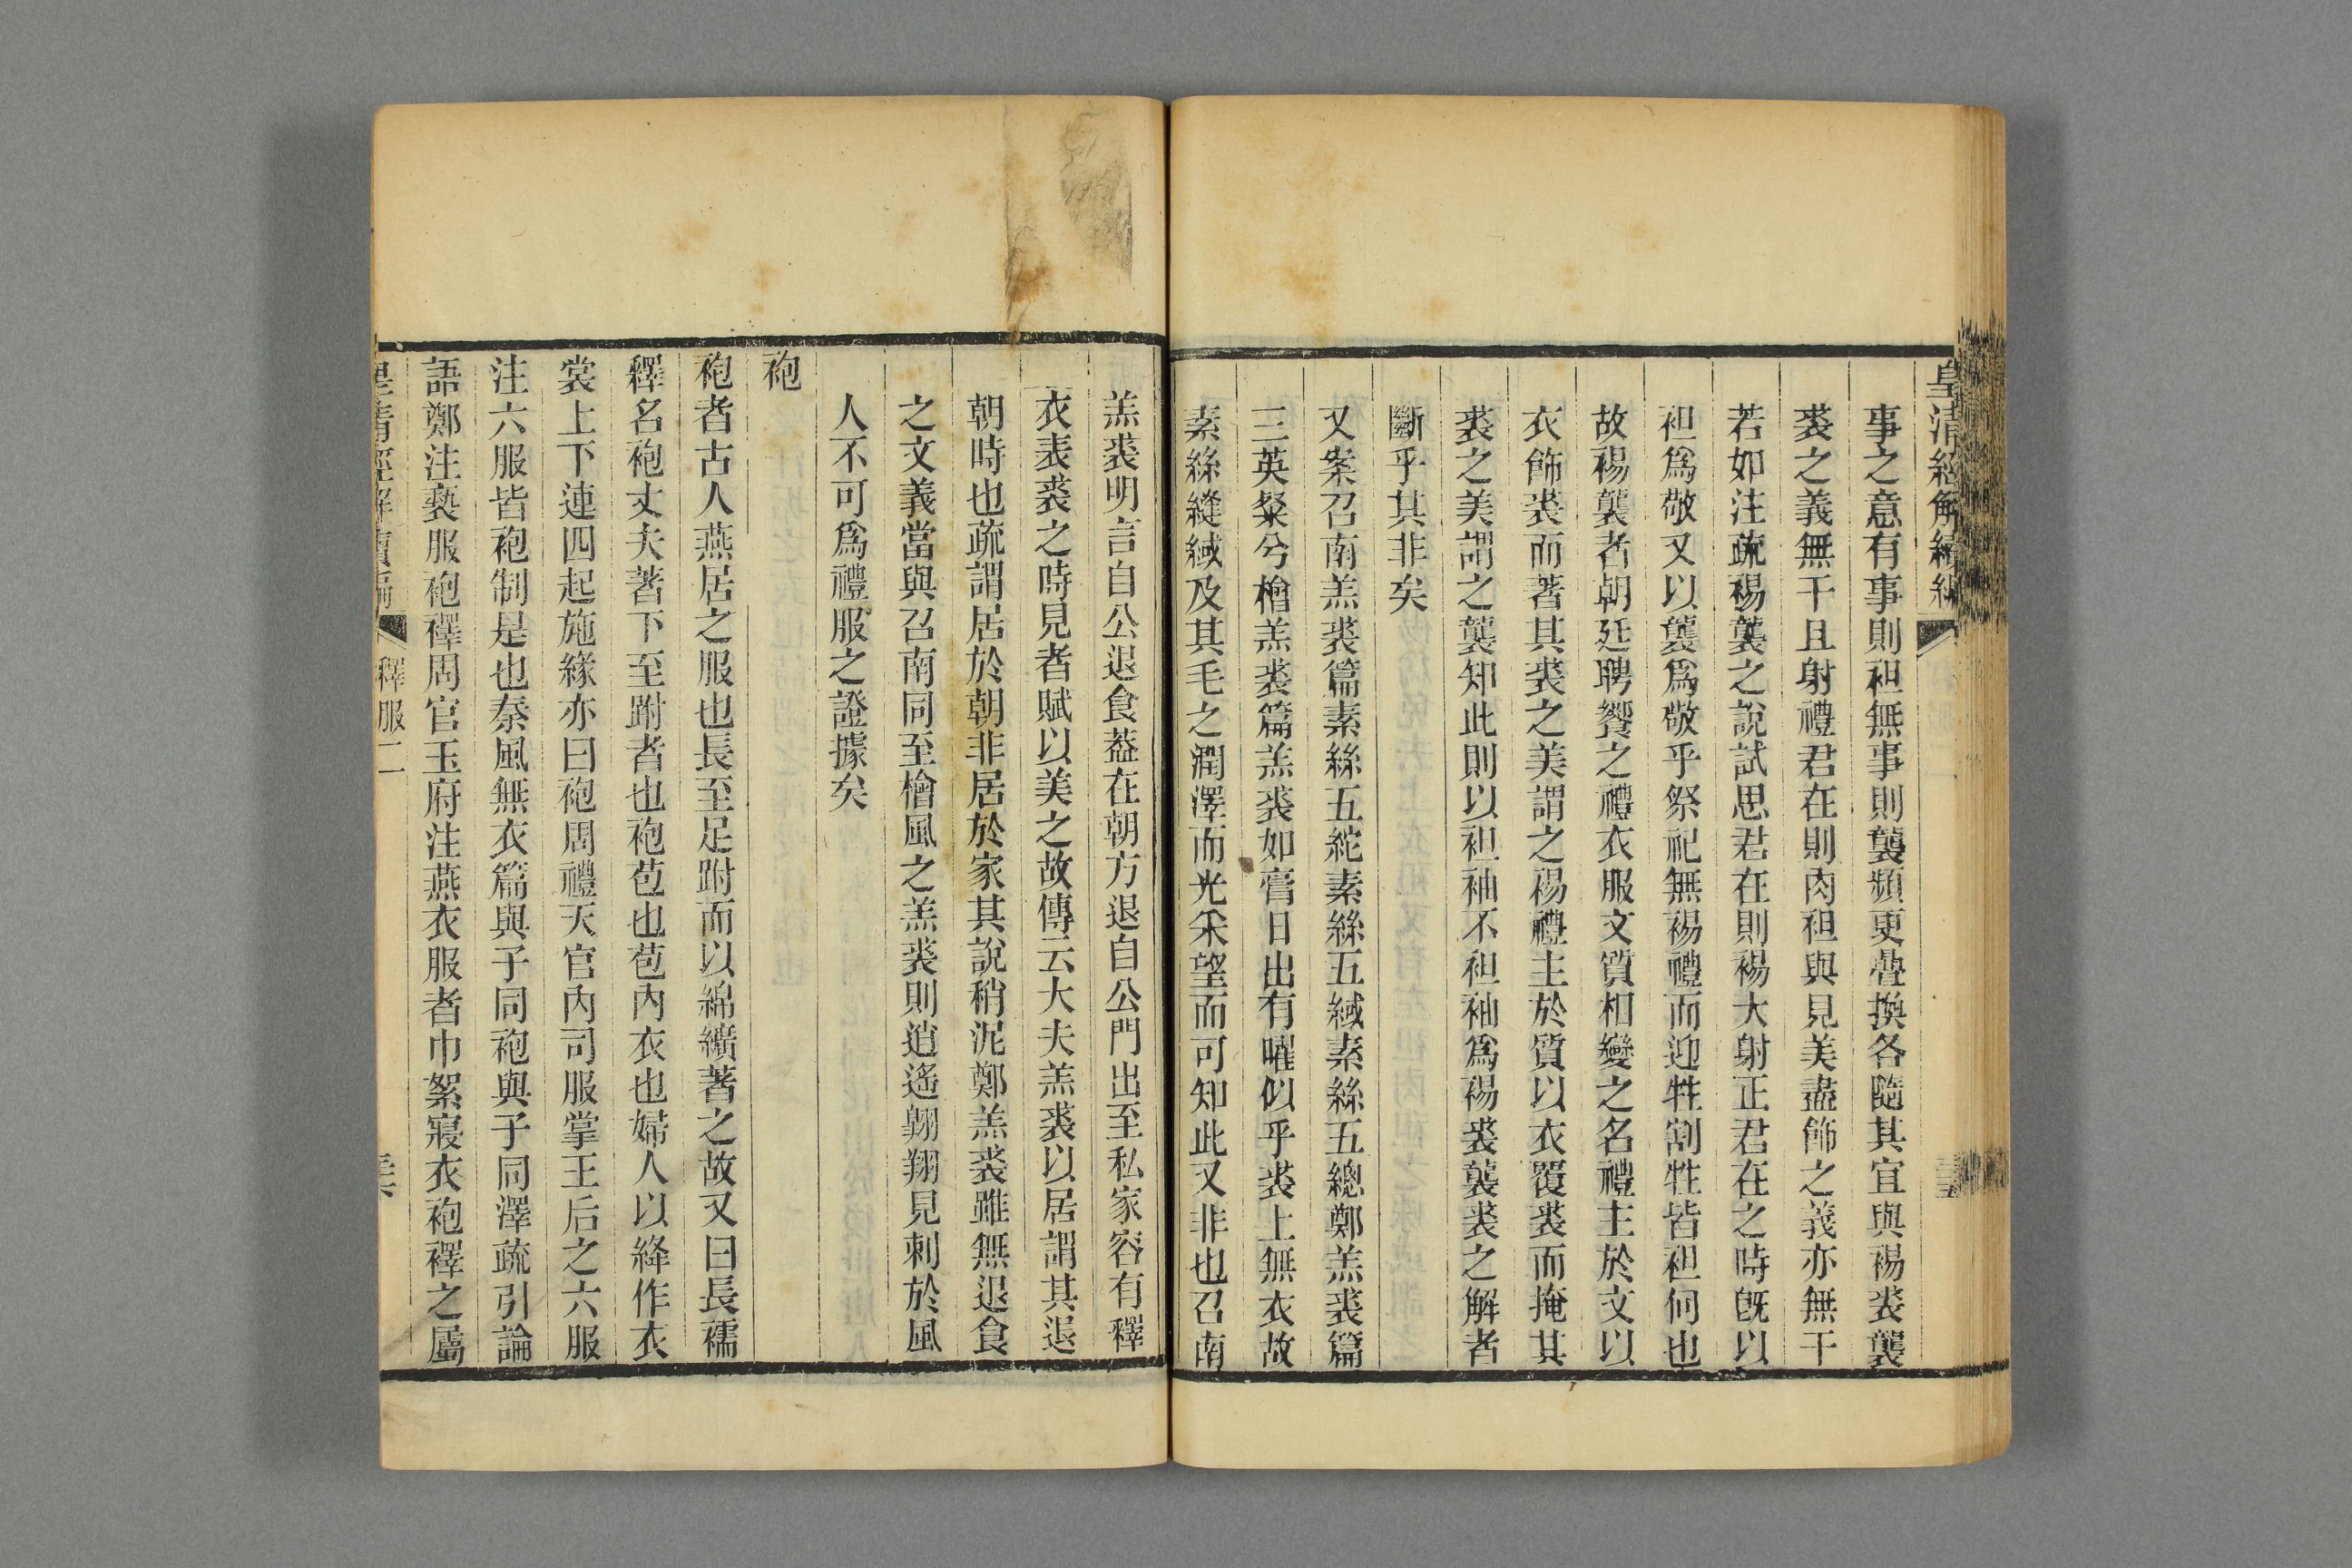 皇清經解續編
事之意有事則袒無事則襲頻更疊換各隨其宜與裼裘襲
裘之義無干且射禮君在則肉袒與見美盡飾之義亦無干
若如注疏裼襲之說試思君在則裼大射正君在之時旣以
袒爲敬又以襲爲敬乎祭祀無裼禮而迎牲割牲皆袒何也
故裼襲者朝廷聘饗之禮衣服文質相變之名禮主於文以
衣飾裘而著其裘之美謂之裼禮主於質以衣覆裘而掩其
裘之美謂之襲知此則以袒袖不袒袖爲裼裘襲裘之解者
斷乎其非矣
又案召南羔裘篇素絲五紽素絲五緎素絲五總鄭羔裘篇
三英粲兮檜羔裘篇羔裘如膏日出有曜似乎裘上無衣故
素絲縫緎及其毛之潤澤而光采望而可知此又非也召南
羔裘明言自公退食葢在朝方退自公門出至私家容有釋
衣表裘之時見者賦以美之故傳云大夫羔裘以居謂其退
朝時也疏謂居於朝非居於家其說稍泥鄭羔裘雖無退食
之文義當與召南同至檜風之羔裘則逍遙翱翔見刺於風
人不可爲禮服之證據矣
袍
袍者古人燕居之服也長至足跗而以綿纊著之故又曰長襦
釋名袍丈夫著下至跗者也袍苞也苞內衣也婦人以絳作衣
裳上下連四起施緣亦曰袍周禮天官內司服掌王后之六服
注六服皆袍制是也秦風無衣篇與子同袍與子同澤疏引論
語鄭注褻服袍襗周官玉府注燕衣服者巾絮寢衣袍襗之屬
皇清經解續編
釋服二